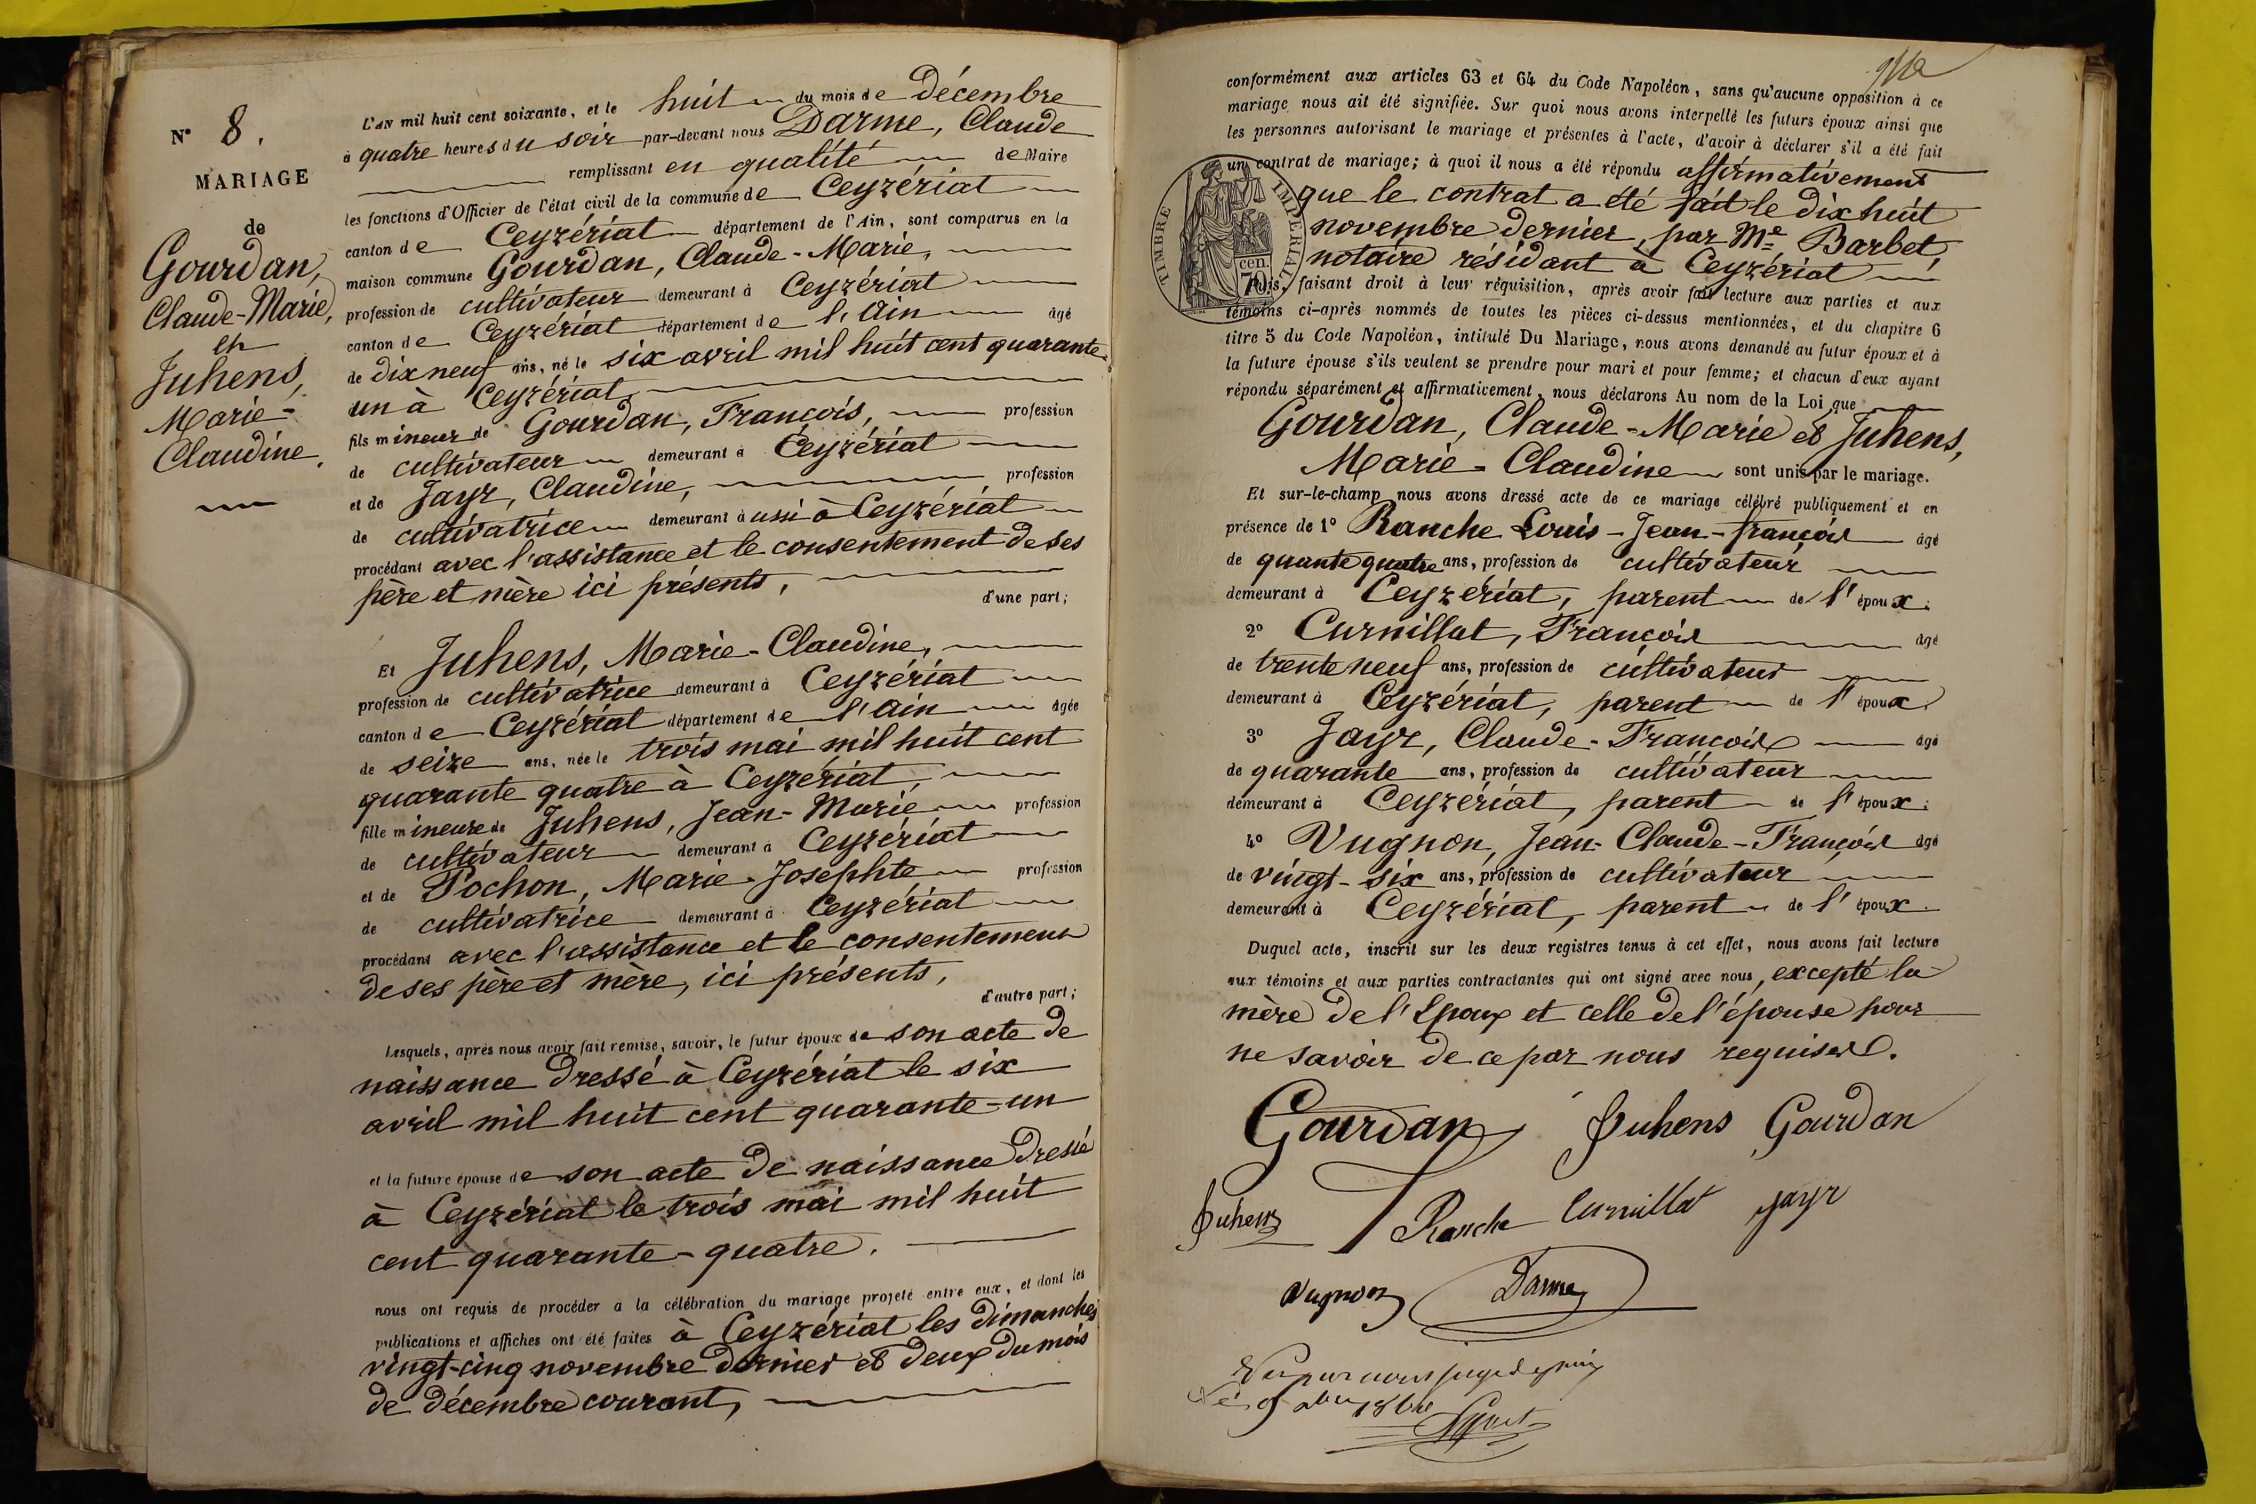 N° 8.
MARIAGE
de
Gourdan,
Claude-Marie,
et
Juhens,
Marie-
Claudine.
L'AN mil huit cent soixante, et le huit du mois de décembre
à quatre heures du soir par-devant nous Darme, Claude
remplissant en qualité de Maire
les fonctions d'Officier de l'état civil de la commune de Ceyzériat
canton de Ceyzériat département de l'Ain, sont comparus en la
maison commune Gourdan, Claude-Marie,
profession de cultivateur demeurant à Ceyzériat
canton de Ceyzériat département de l'Ain âgé
de dix neuf ans, né le six avril mil huit cent quarante-
un à Ceyzériat,
fils mineur de Gourdan, François, profession
de cultivateur demeurant à Ceyzériat
et de Jayr, Claudine, profession
de cultivatrice demeurant aussi à Ceyzériat
procédant avec l'assistance et le consentement de ses
père et mère ici présents,
d'une part;
Et Juhens, Marie-Claudine,
profession de cultivatrice demeurant à Ceyzériat
canton de Ceyzériat département de l'Ain âgée
de seize ans, née le trois mai mil huit cent
quarante quatre à Ceyzériat,
fille mineure de Juhens, Jean-Marie profession
de cultivateur demeurant à Ceyzériat
et de Pochon, Marie-Josephte profession
de cultivatrice demeurant à Ceyzériat
procédant avec l'assistance et le consentement
de ses père et mère, ici présents,
d'autre part;
Lesquels, après nous avoir fait remise, savoir, le futur époux de son acte de
naissance dressé à Ceyzériat le six
avril mil huit cent quarante-un
et la future épouse de son acte de naissance dressé
à Ceyzériat le trois mai mil huit
cent quarante-quatre.
nous ont requis de procéder à la célébration du mariage projeté entre eux, et dont les
publications et affiches ont été faites à Ceyzériat les dimanches
vingt-cinq novembre dernier et deux du mois
de décembre courant,
conformément aux articles 63 et 64 du Code Napoléon, sans qu'aucune opposition à ce
mariage nous ait été signifiée. Sur quoi nous avons interpellé les futurs époux ainsi que
les personnes autorisant le mariage et présentes à l'acte, d'avoir à déclarer s'il a été fait
un contrat de mariage; à quoi il nous a été répondu affirmativement
que le contrat a été fait le dix huit
novembre dernier, par Me Barbet,
notaire résidant à Ceyzériat
TIMBRE IMPERIAL
70 cen.
Puis, faisant droit à leur réquisition, après avoir fait lecture aux parties et aux
témoins ci-après nommés de toutes les pièces ci-dessus mentionnées, et du chapitre 6
titre 5 du Code Napoléon, intitulé Du Mariage, nous avons demandé au futur époux et à
la future épouse s'ils veulent se prendre pour mari et pour femme; et chacun d'eux ayant
répondu séparément et affirmativement, nous déclarons Au nom de la Loi que
Gourdan, Claude-Marie et Juhens,
Marie-Claudine sont unis par le mariage.
Et sur-le-champ nous avons dressé acte de ce mariage célébré publiquement et en
présence de 1° Ranche Louis-Jean-françois âgé
de quante quatre ans, profession de cultivateur
demeurant à Ceyzériat, parent de l'époux.
2° Curnillat, François âgé
de trente neuf ans, profession de cultivateur
demeurant à Ceyzériat, parent de l'époux.
3° Jayr, Claude-François âgé
de quarante ans, profession de cultivateur
demeurant à Ceyzériat, parent de l'époux.
4° Vugnon, Jean-Claude-François âgé
de vingt-six ans, profession de cultivateur
demeurant à Ceyzériat, parent de l'époux.
Duquel acte, inscrit sur les deux registres tenus à cet effet, nous avons fait lecture
aux témoins et aux parties contractantes qui ont signé avec nous, excepté la
mère de l'Epoux et celle de l'épouse pour
ne savoir de ce par nous requises.
Gourdan Juhens Gourdan
Juhens Ranche Curnillat Jayr
Vugnon Darme